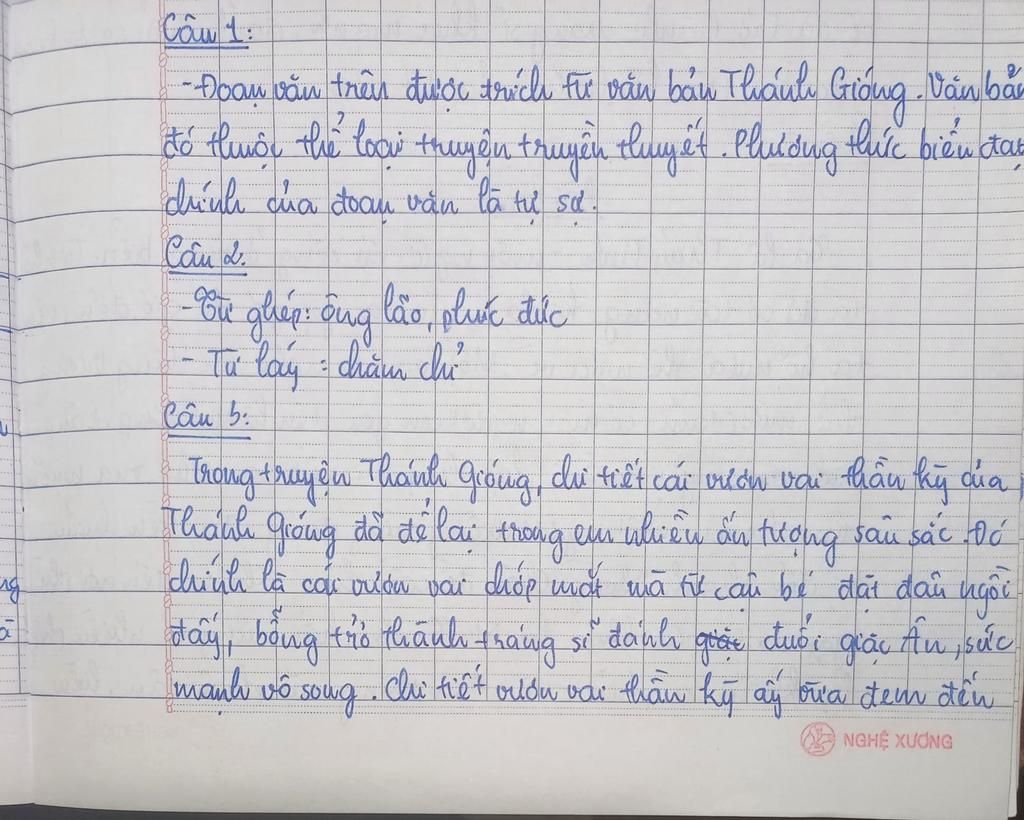 Câu 1:
- Đoạn văn trên được trích từ văn bản Thánh Gióng. Văn bản
đó thuộc thể loại truyện truyền thuyết. Phương thức biểu đạt
chính của đoạn văn là tự sự.
Câu 2.
- Từ ghép: ông lão, phúc đức
- Từ láy: chăm chỉ
Câu 3:
Trong truyện Thánh Gióng, chi tiết cái vươn vai thần kỳ của
Thánh Gióng đã để lại trong em nhiều ấn tượng sâu sắc. Đó
chính là cái vươn vai chớp mắt mà từ cậu bé đặt đâu ngồi
đấy, bỗng trở thành tráng sĩ đánh giặc đuổi giặc Ân, sức
mạnh vô song. Chi tiết vươn vai thần kỳ ấy vừa đem đến
NGHỆ XƯƠNG
ng